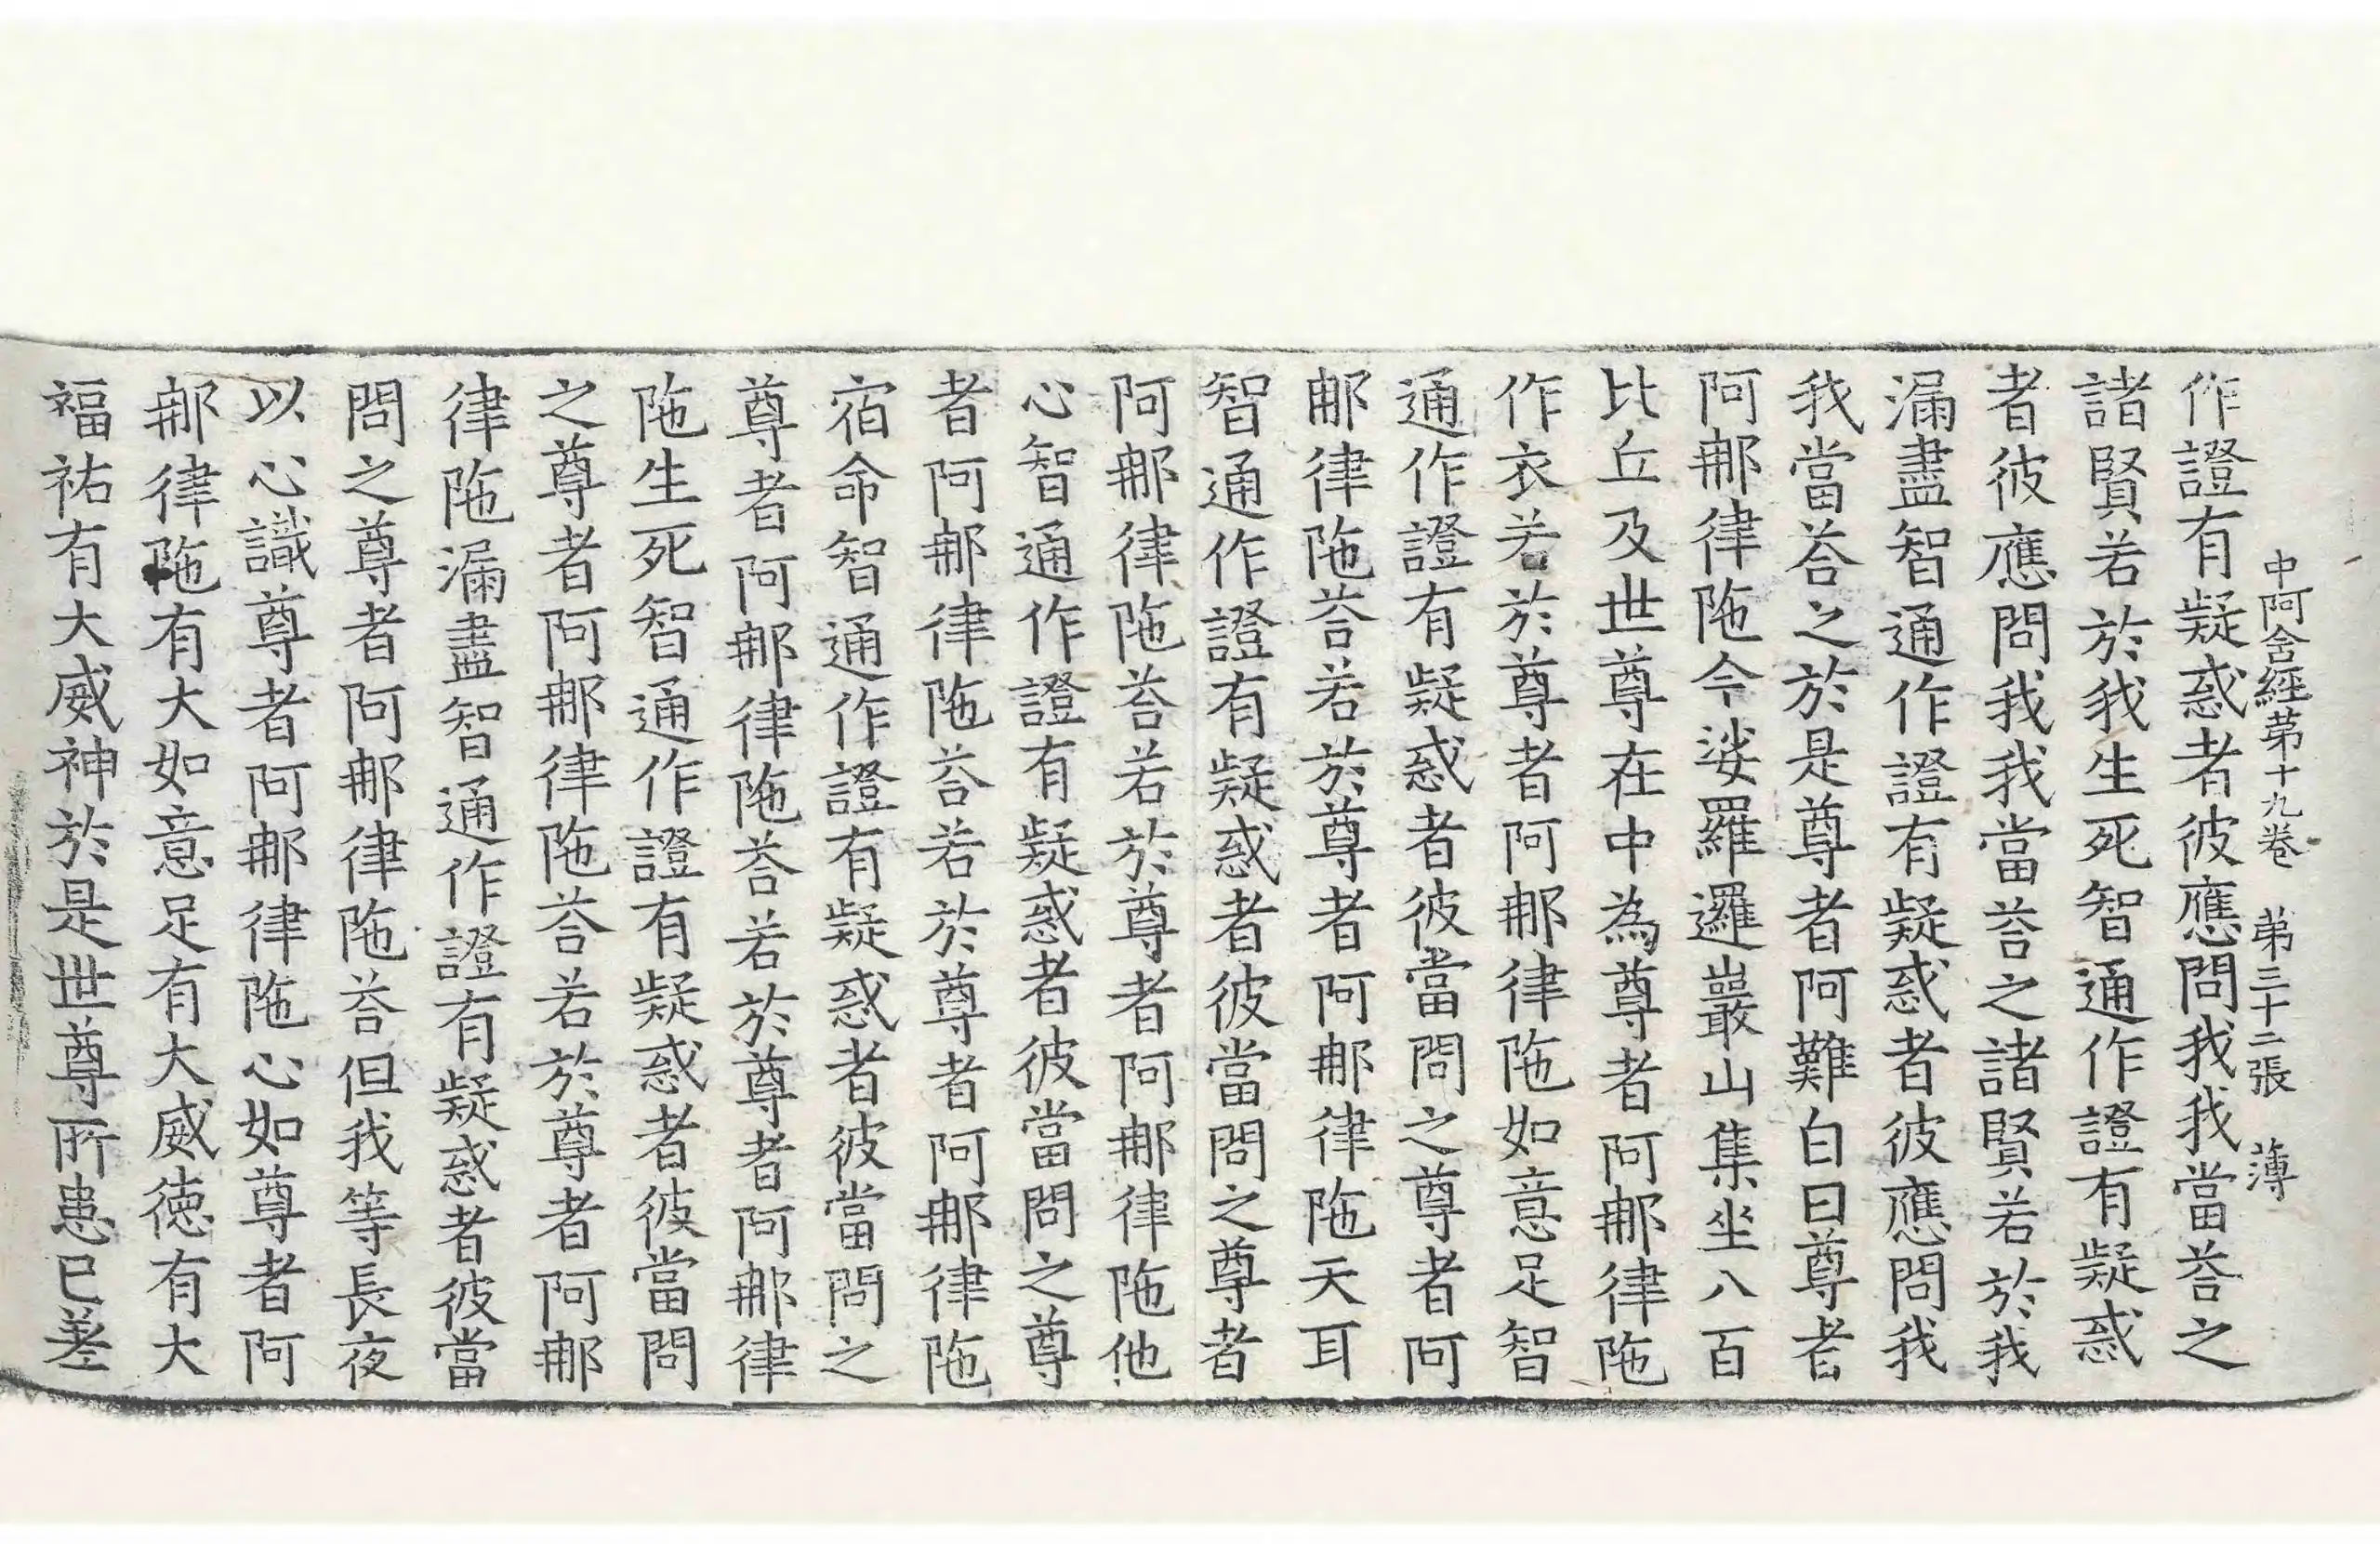 中阿含經第十九卷　第三十二張　薄
作證有疑惑者彼應問我我當荅之
諸賢若於我生死智通作證有疑惑
者彼應問我我當荅之諸賢若於我
漏盡智通作證有疑惑者彼應問我
我當荅之於是尊者阿難白曰尊者
阿那律陁今娑羅邏巖山集坐八百
比丘及世尊在中為尊者阿那律陁
作衣若於尊者阿那律陁如意足智
通作證有疑惑者彼當問之尊者阿
那律陁荅若於尊者阿那律陁天耳
智通作證有疑惑者彼當問之尊者
阿那律陁荅若於尊者阿那律陁他
心智通作證有疑惑者彼當問之尊
者阿那律陁荅若於尊者阿那律陁
宿命智通作證有疑惑者彼當問之
尊者阿那律陁荅若於尊者阿那律
陁生死智通作證有疑惑者彼當問
之尊者阿那律陁荅若於尊者阿那
律陁漏盡智通作證有疑惑者彼當
問之尊者阿那律陁荅但我等長夜
以心識尊者阿那律陁心如尊者阿
那律陁有大如意足有大威徳有大
福祐有大威神於是世尊所患已差